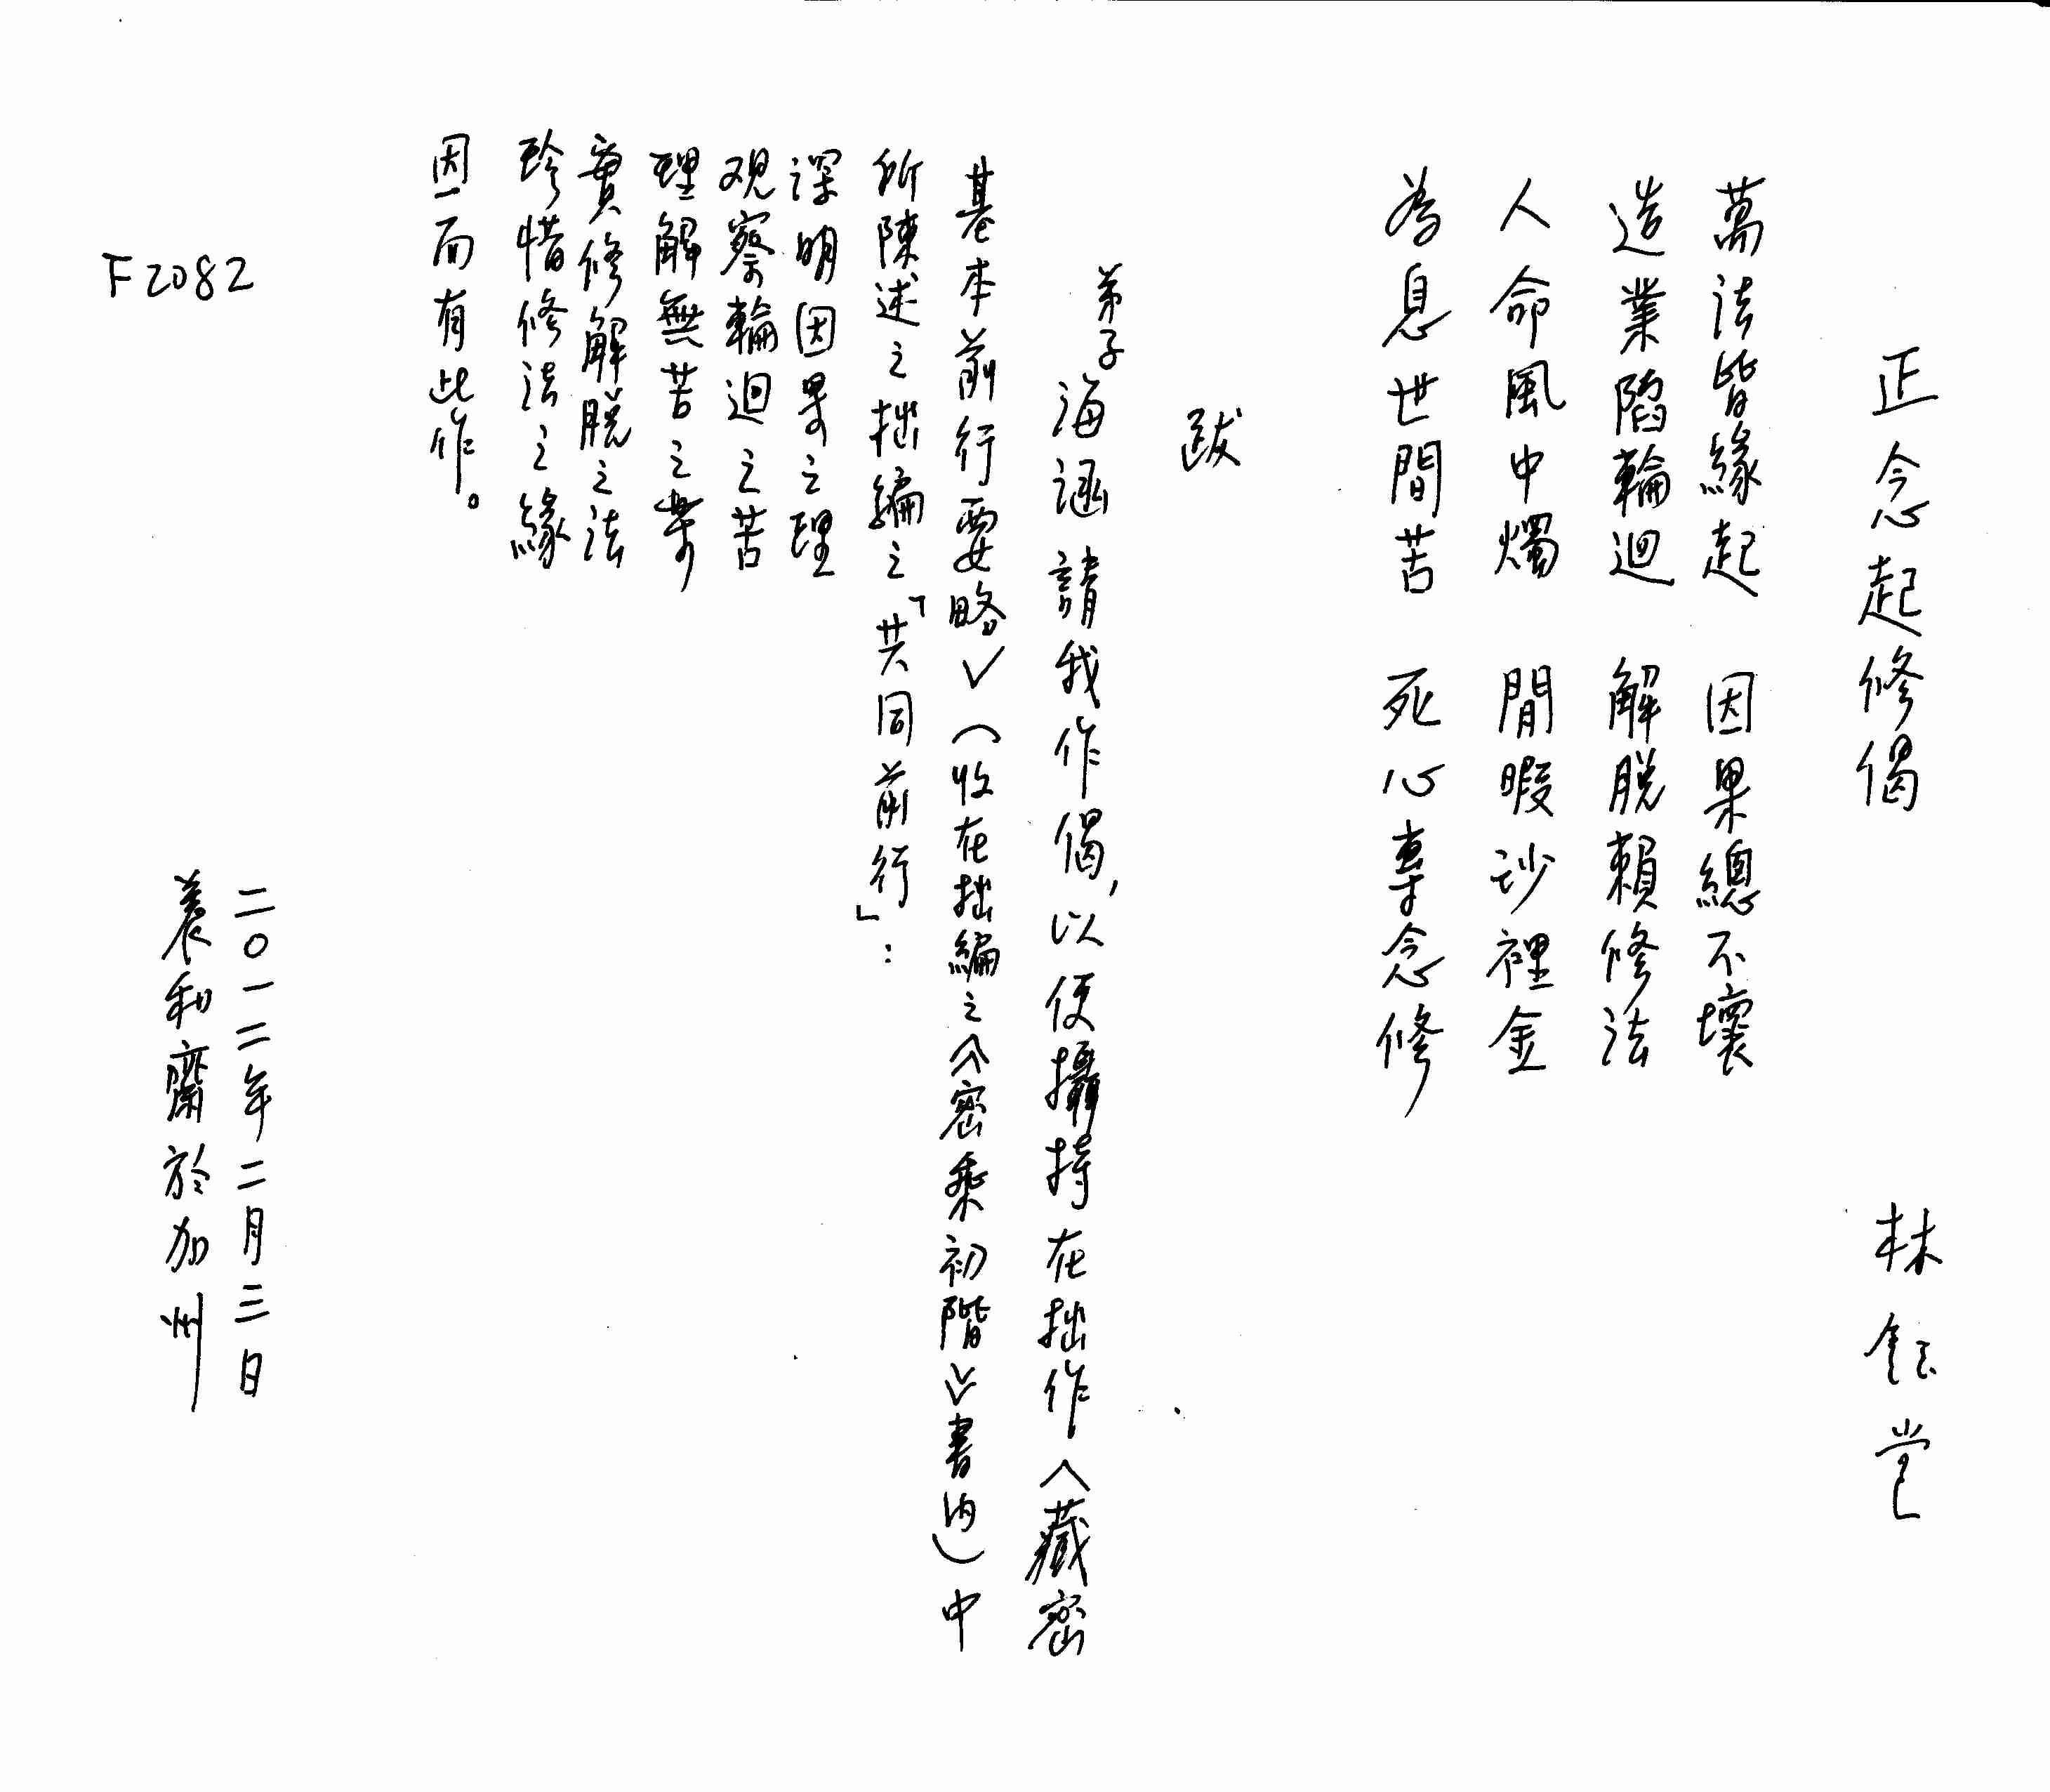 正念起修偈 林鈺堂
萬法皆緣起 因果總不壞
造業陷輪迴 解脫賴修法
人命風中燭 閒暇沙裡金
為息世間苦 死心專念修
跋
弟子海涵請我作偈,以便攝持在拙作〈藏密
基本前行要略〉(收在拙編之《密乘初階》書內)中
所陳述之拙編之「共同前行」:
深明因果之理
观察輪迴之苦
理解無苦之樂
實修解脫之法
珍惜修法之緣
因而有此作。
二〇一二年二月三日
養和齋於加州
F2082